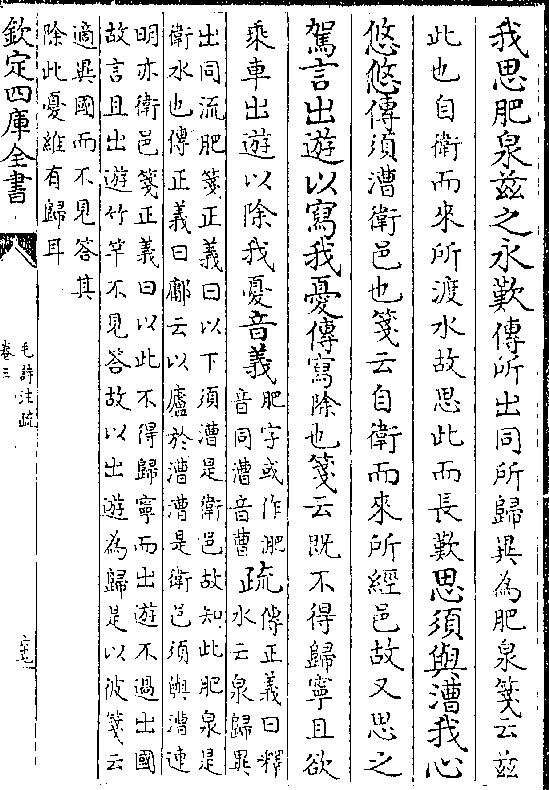 我思肥泉兹之永歎傳所出同所歸異為肥泉箋云兹
此也自衛而來所渡水故思此而長歎思須與漕我心
悠悠傳須漕衛邑也箋云自衛而來所經邑故又思之
駕言出遊以寫我憂傳寫除也箋云既不得歸寧且欲
乘車出遊以除我憂音義
肥字或作淝
音同漕音曹
疏
傳正義曰釋
水云泉歸異
出同流肥箋正義曰以下須漕是衛邑故知此肥泉是
衛水也傳正義曰鄘云以廬於漕漕是衛邑須與漕連
明亦衛邑箋正義曰以此不得歸寧而出遊不過出國
故言且出遊竹竿不見答故以出遊為歸是以彼箋云
適異國而不見答其
除此憂維有歸耳
欽定四庫全書
毛詩注疏
卷三